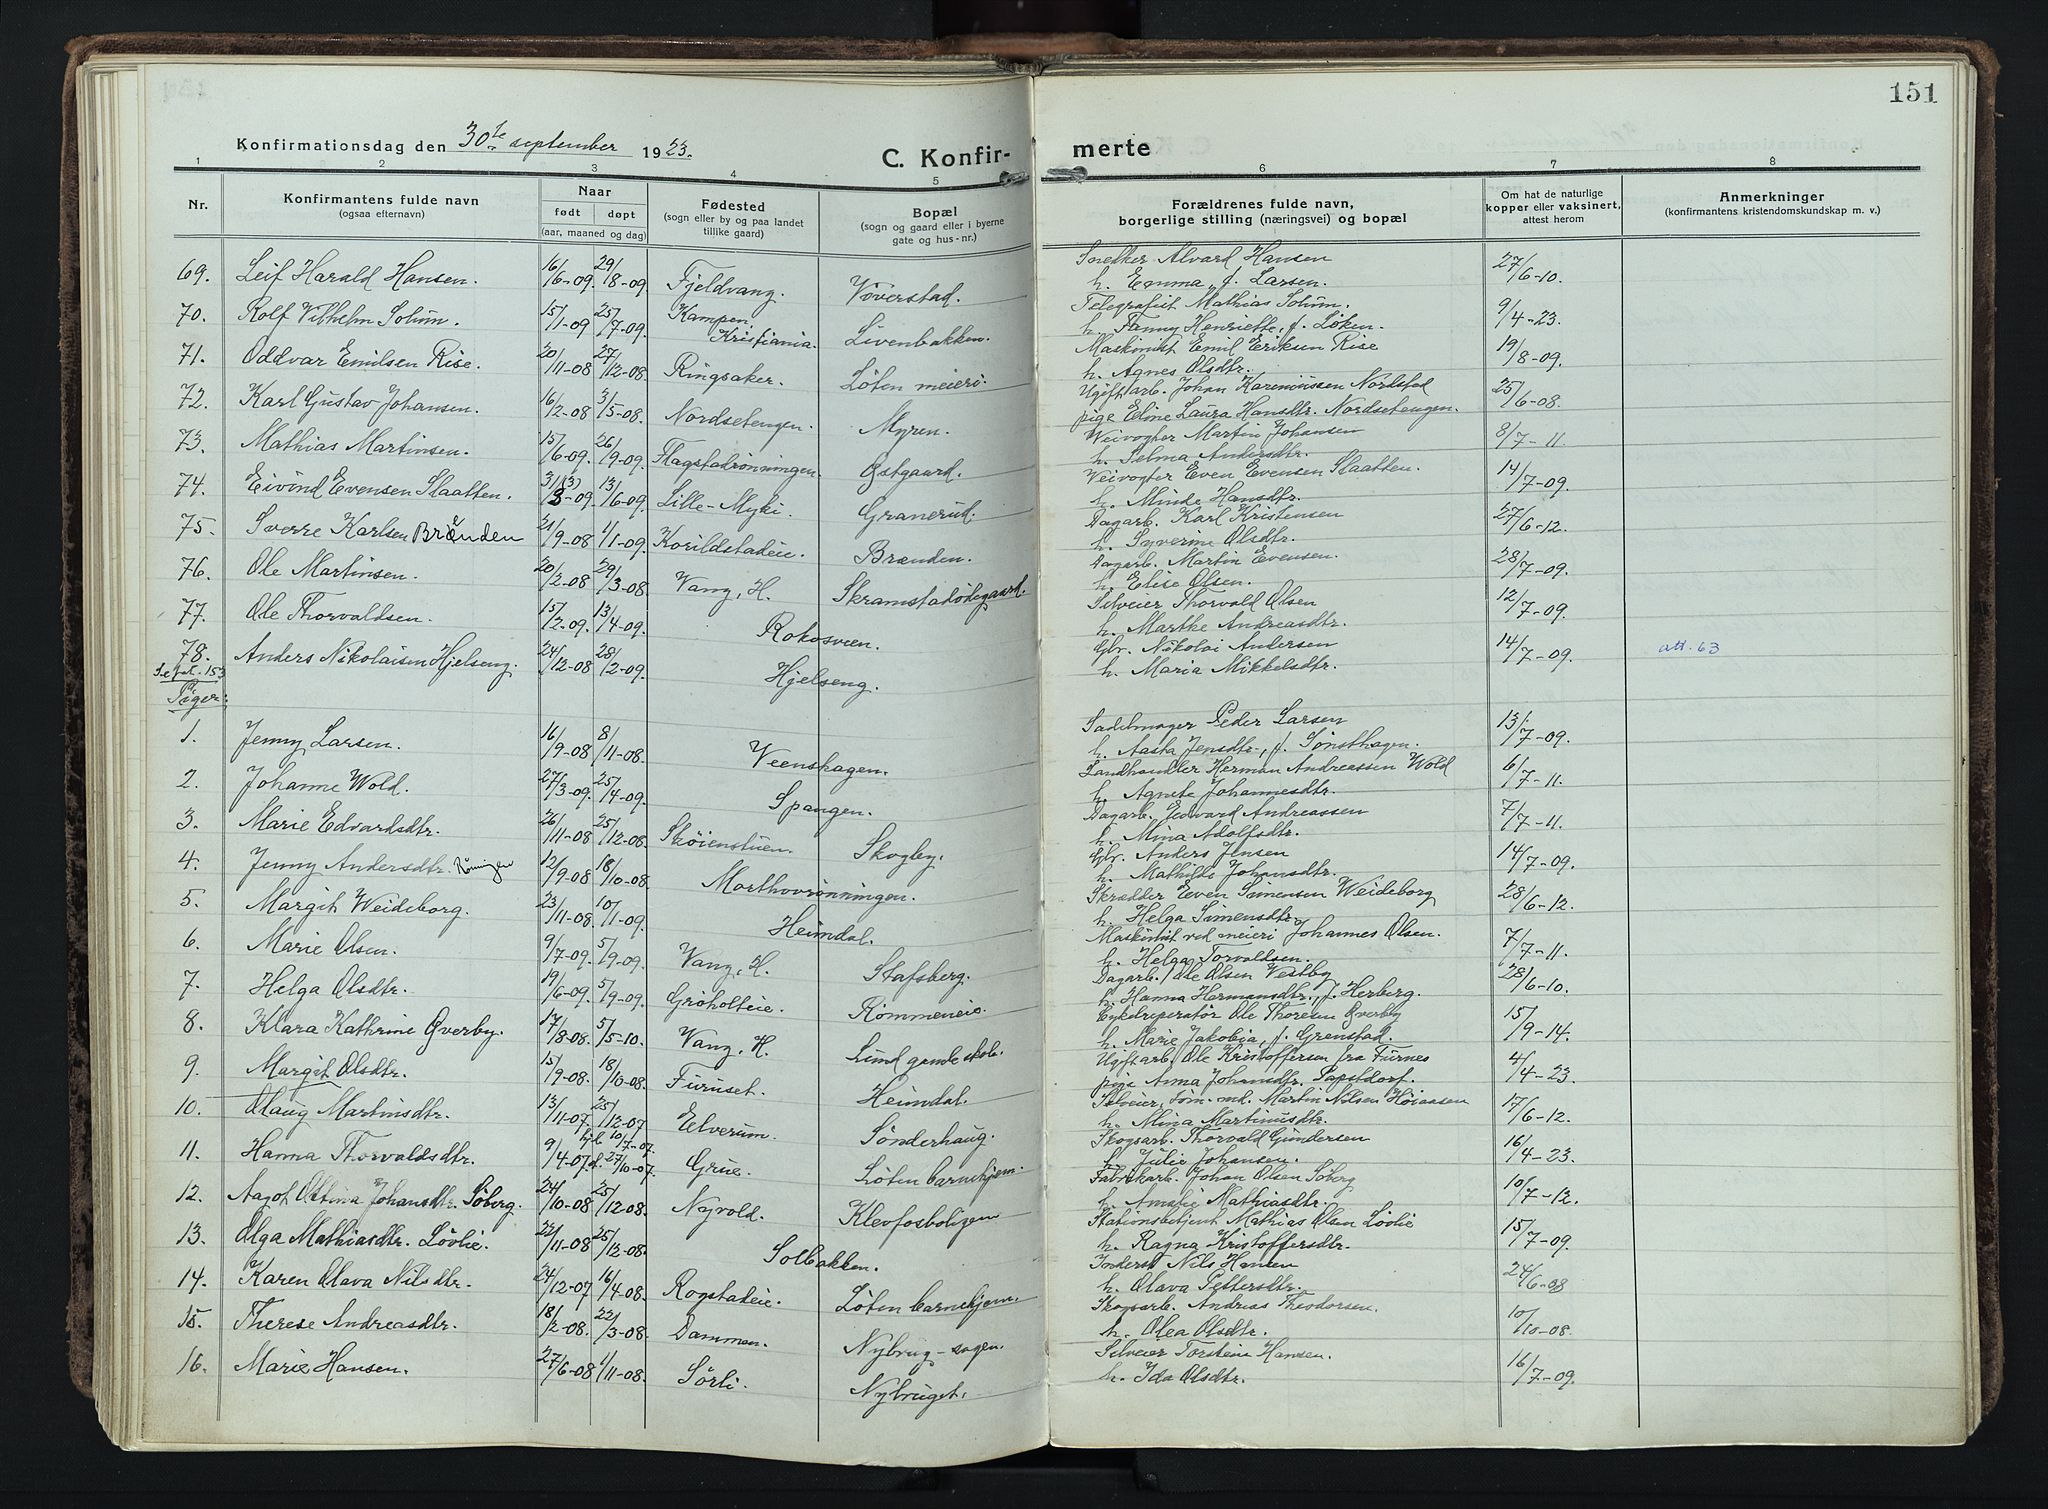 151
Konfirmationsdag den 30te september 1923.
C. Konfir-
merte
1 2 3 4 5 6 7 8
Nr.
Konfirmantens fulde navn
(ogsaa efternavn)
Naar
født døpt
(aar, maaned og dag)
Fødested
(sogn eller by og paa landet
tillike gaard)
Bopæl
(sogn og gaard eller i byerne
gate og hus-nr.)
Forældrenes fulde navn,
borgerlige stilling (næringsvei) og bopæl
Om hat de naturlige
kopper eller vaksinert,
attest herom
Anmerkninger
(konfirmantens kristendomskundskap m. v.)
69. Leif Harald Hansen. 16/6-09 29/8-09. Fjeldvang. Vøverstad. Snedker Alvard Hansen 27/6-10.
h. Emma, f. Larsen.
70. Rolf Vilhelm Solum. 15/1-09 25/7-09. Kampen, Kristiania. Livenbakken. Telegrafist Mathias Solum. 9/4-23.
h. Fanny Henriette, f. Løken.
71. Oddvar Emilsen Rise. 20/11-08 27/12-08. Ringsaker. Løten meieri. Maskinist Emil Eriksen Rise 19/8-09.
h. Agnes Olsdtr.
72. Karl Gustav Johansen. 16/2-08 3/5-08. Nordsetengen. Myren. Ugift arb. Johan Kareniussen Nordstad 25/6-08.
pige Eline Laura Hansdtr. Nordsetengen.
73. Mathias Martinsen. 15/6-09. 26/9-09. Flagstadrønningen. Østgaard. Veivogter Martin Johansen 8/7-11.
h. Selma Andersdtr.
74. Eivind Evensen Slaatten. 31/3-09. (3) 13/6-09. Lille-Myki. Granerud. Veivogter Even Evensen Slaatten. 14/7-09.
h. Minde Hansdtr.
75. Sverre Karlsen Brænden 21/9-08 1/1-09. Korildstadeie. Brænden. Dagarb. Karl Kristensen 27/6-12.
h. Syverine Olsdtr.
76. Ole Martinsen. 20/2-08 29/3-08. Vang, H. Skramstadødegaard. Dagarb. Martin Evensen. 28/7-09.
h. Elise Olsen.
77. Ole Thorvaldsen. 15/2-09. 13/4-09. Rokosveen. Selveier Thorvald Olsen 12/7-09.
h. Marthe Andreasdtr.
78. Anders Nikolaisen Hjelseng. 24/12-08 28/2-09. Hjelseng. Gbr. Nikolai Andersen 14/7-09. att. 63
h. Maria Mikkelsdtr.
Se fol. 153
Piger:
1. Jenny Larsen. 16/9-08 8/11-08. Veenshagen. Sadelmager Peder Larsen 13/7-09.
h. Aasta Jensdtr., f. Sønsthagen.
2. Johanne Wold. 27/3-09. 25/4-09. Spangen. Landhandler Herman Andreassen Wold 6/7-11.
h. Agnete Johannesdtr.
3. Marie Edvardsdtr. 26/11-08 25/12-08. Skøienstuen. Skogby. Dagarb. Edvard Andreassen 7/7-11.
h. Mina Adolfsdtr.
4. Jenny Andersdtr. Röningen 12/9-08 18/10-08. Morthovrønningen. Gbr. Anders Jensen 14/7-09.
h. Mathilde Johansdtr.
5. Margit Weideborg. 23/11-08. 10/1-09. Heimdal. Skrædder Even Simensen Weideborg 28/6-12.
h. Helga Simensdtr.
6. Marie Olsen. 9/7-09. 5/9-09. Vang, H. Stafsberg. Maskinist ved meieri Johannes Olsen. 7/7-11.
h. Helga Torvaldsen.
7. Helga Olsdtr. 19/6-09. 5/9-09. Grøholteie. Rømmeneie. Dagarb. Ole Olsen Vestby 28/6-10.
h. Hanna Hermansdtr., f. Herberg.
8. Klara Kathrine Øverby. 17/8-08. 5/5-10. Vang, H. Lund gamle skole. Cykelreparatør Ole Thoresen Øverby 15/9-14.
h. Marie Jakobia, f. Grenstad.
9. Margit Olsdtr. 15/9-08. 18/10-08. Furuset. Heimdal. Ugift arb. Ole Kristoffersen fra Furnes 4/4-23.
pige Anna Johansdtr. Papstdorf.
10. Olaug Martinsdtr. 13/11-07 25/12-07 Elverum. Sønderhaug. Selveier, tøm.md. Martin Nilsen Høiaasen 17/6-12.
h. Mina Martinusdtr.
11. Hanna Thorvaldsdtr. 9/4-07 hjd. 10/7-07. d. 27/10-07. Grue. Løten barnehjem. Skogsarb. Thorvald Gundersen 16/4-23.
h. Julie Johansen.
12. Aagot Ottina Johansdtr. Søberg. 24/10-08 25/12-08. Nyvold. Klevfosboligen Fabrikarb. Johan Olsen Søberg 10/7-12.
h. Amalie Mathiasdtr.
13. Olga Mathiasdtr. Løvlie. 22/11-08 25/12-08. Solbakken. Stationsbetjent Mathias Olsen Løvlie 15/7-09.
h. Ragna Kristoffersdtr.
14. Karen Olava Nilsdtr. 24/12-07 16/4-08. Rogstadeie. Løten barnehjem. Inderst Nils Hansen 24/6-08
h. Olava Pettersdtr.
15. Therese Andreasdtr. 18/2-08. 22/3-08. Dammen. Nybrug-sagen. Skogsarb. Andreas Theodorsen. 10/10-08.
h. Olea Olsdtr.
16. Marie Hansen. 27/6-08 1/11-08. Sørli. Nybruget. Selveier Torstein Hansen. 16/7-09.
h. Ida Olsdtr.